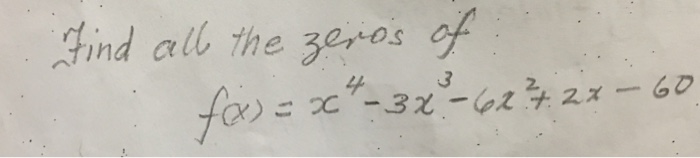 Find all the zeros of
f(x) = x⁴ - 3x³ - 6x² + 2x - 60